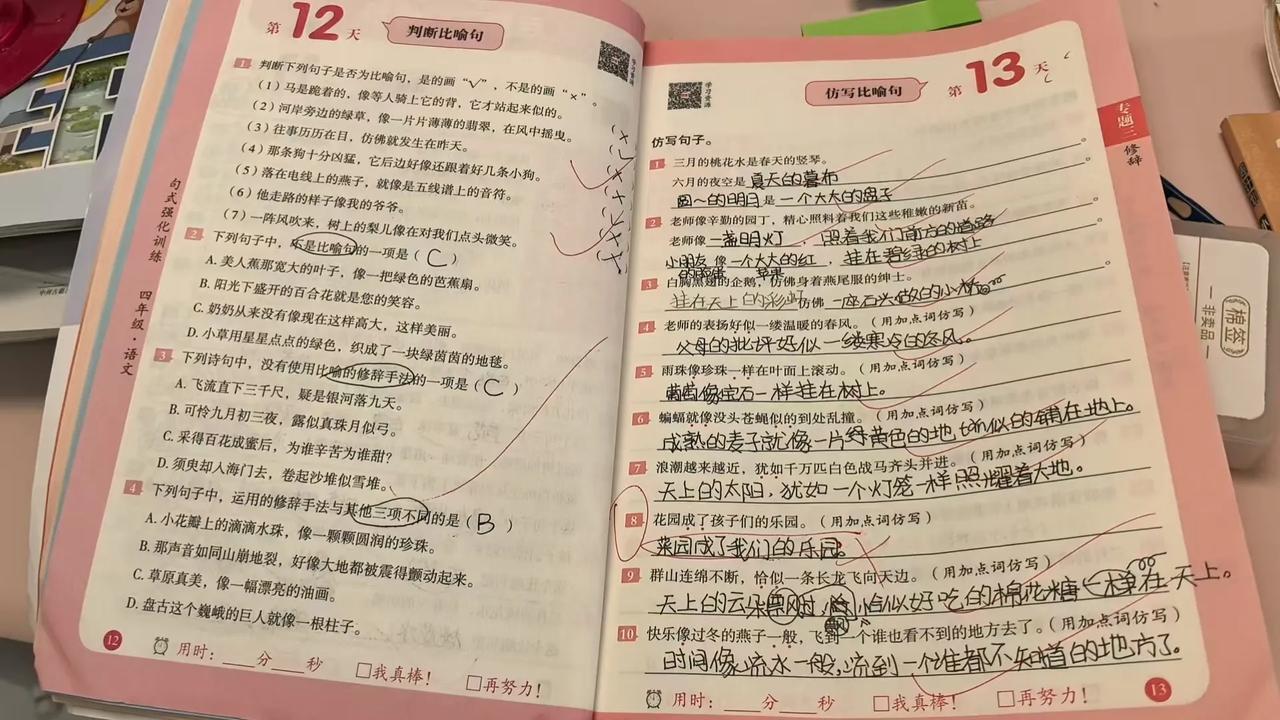 第12天
判断比喻句
1 判断下列句子是否为比喻句，是的画“√”，不是的画“×”。
（1）马是跪着的，像等人骑上它的背，它才站起来似的。
（2）河岸旁边的绿草，像一片片薄薄的翡翠，在风中摇曳。
（3）往事历历在目，仿佛就发生在昨天。
（4）那条狗十分凶猛，它后边好像还跟着好几条小狗。
（5）落在电线上的燕子，就像是五线谱上的音符。
（6）他走路的样子像我的爷爷。
（7）一阵风吹来，树上的梨儿像在对我们点头微笑。
2 下列句子中，不是比喻句的一项是（C）
A. 美人蕉那宽大的叶子，像一把绿色的芭蕉扇。
B. 阳光下盛开的百合花就是您的笑容。
C. 奶奶从来没有像现在这样高大，这样美丽。
D. 小草用星星点点的绿色，织成了一块绿茵茵的地毯。
3 下列诗句中，没有使用比喻的修辞手法的一项是（C）
A. 飞流直下三千尺，疑是银河落九天。
B. 可怜九月初三夜，露似真珠月似弓。
C. 采得百花成蜜后，为谁辛苦为谁甜？
D. 须臾却入海门去，卷起沙堆似雪堆。
4 下列句子中，运用的修辞手法与其他三项不同的是（B）
A. 小花瓣上的滴滴水珠，像一颗颗圆润的珍珠。
B. 那声音如同山崩地裂，好像大地都被震得颤动起来。
C. 草原真美，像一幅漂亮的油画。
D. 盘古这个巍峨的巨人就像一根柱子。
12
用时：____分____秒 □我真棒！ □再努力！
句式强化训练 四年级·语文
学习资源
仿写比喻句
第13天
专题三 修辞
仿写句子。
1 三月的桃花水是春天的竖琴。
六月的夜空是夏天的幕布。
的明月是一个大大的盘子。
2 老师像辛勤的园丁，精心照料着我们这些稚嫩的新苗。
老师像一盏明灯，照着我们前方的道路。
小朋友像一个大大的红苹果，挂在碧绿的树上
3 白胸黑翅的企鹅，仿佛身着燕尾服的绅士。
挂在天上的彩虹仿佛一座石头做的小桥。
4 老师的表扬好似一缕温暖的春风。（用加点词仿写）
父母的批评好似一缕寒冷的冬风。
5 雨珠像珍珠一样在叶面上滚动。（用加点词仿写）
葡萄像宝石一样挂在树上。
6 蝙蝠就像没头苍蝇似的到处乱撞。（用加点词仿写）
成熟的麦子就像一片金黄色的地毯似的铺在地上。
7 浪潮越来越近，犹如千万匹白色战马齐头并进。（用加点词仿写）
天上的太阳，犹如一个灯笼一样照耀着大地。
8 花园成了孩子们的乐园。（用加点词仿写）
菜园成了我们的乐园。
9 群山连绵不断，恰似一条长龙飞向天边。（用加点词仿写）
天上的云朵恰似好吃的棉花糖一样在天上。
10 快乐像过冬的燕子一般，飞到一个谁也看不到的地方去了。（用加点词仿写）
时间像流水一般，流到一个谁都不知道的地方了。
用时：____分____秒 □我真棒！ □再努力！
13
棉签
非卖品